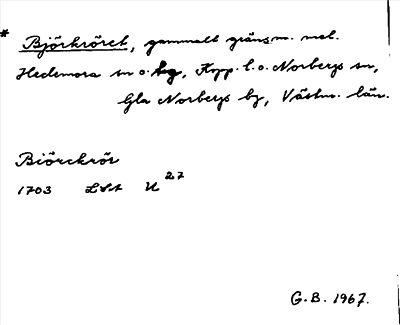 * Björkröret, gammalt gränsm. mel.
Hedemora sn o. hg, Kopp. l. o. Norbergs sn,
Gla Norbergs bg, Västm. län.
Biörckrör
1703 LSA U 27
G.B. 1967.